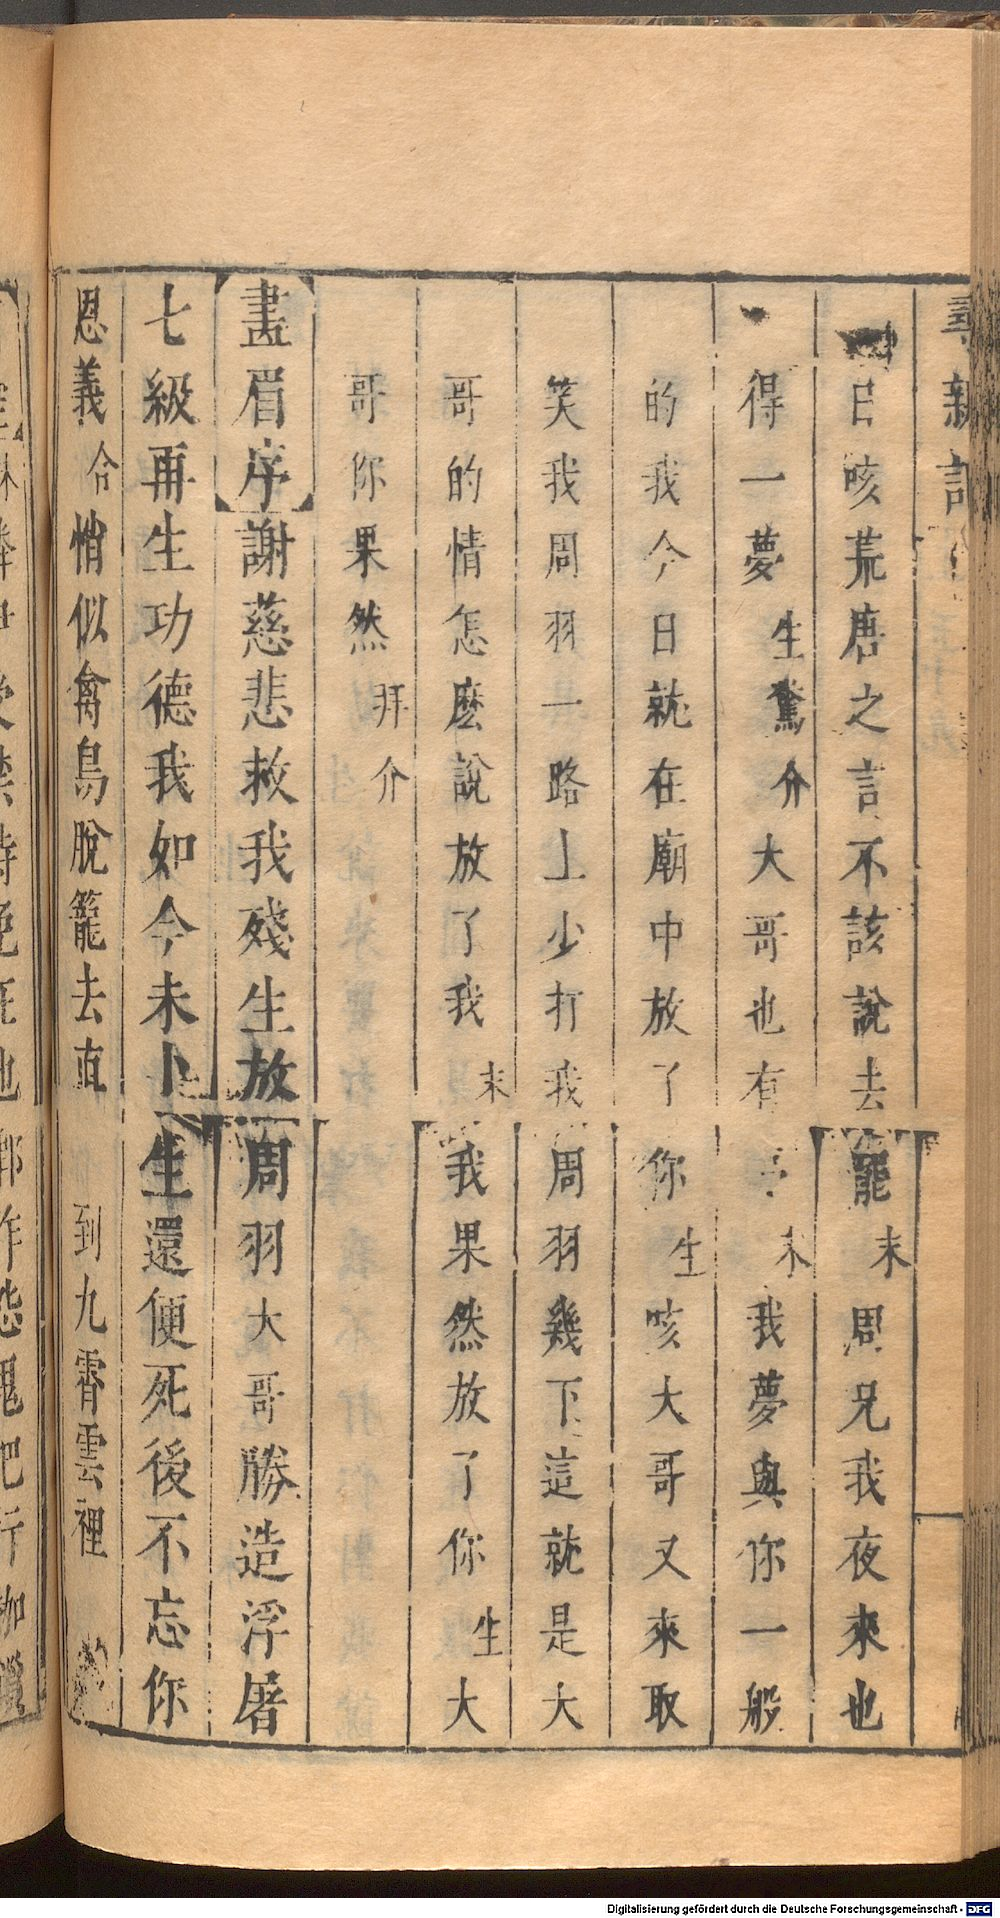 尋親記
日咳荒唐之言不該說去罷末周兄我夜來也
得一夢生驚介大哥也有末我夢與你一般
的我今日就在廟中放了你生咳大哥又來取
笑我周羽一路上少打我周羽幾下這就是大
哥的情怎麽說放了我末我果然放了你生大
哥你果然拜介
畫眉序謝慈悲救我殘生放周羽大哥勝造浮屠
七級再生功德我如今未卜生還便死後不忘你
恩義合悄似禽鳥脫籠去直到九霄雲裡
Digitalisierung gefördert durch die Deutsche Forschungsgemeinschaft - DFG